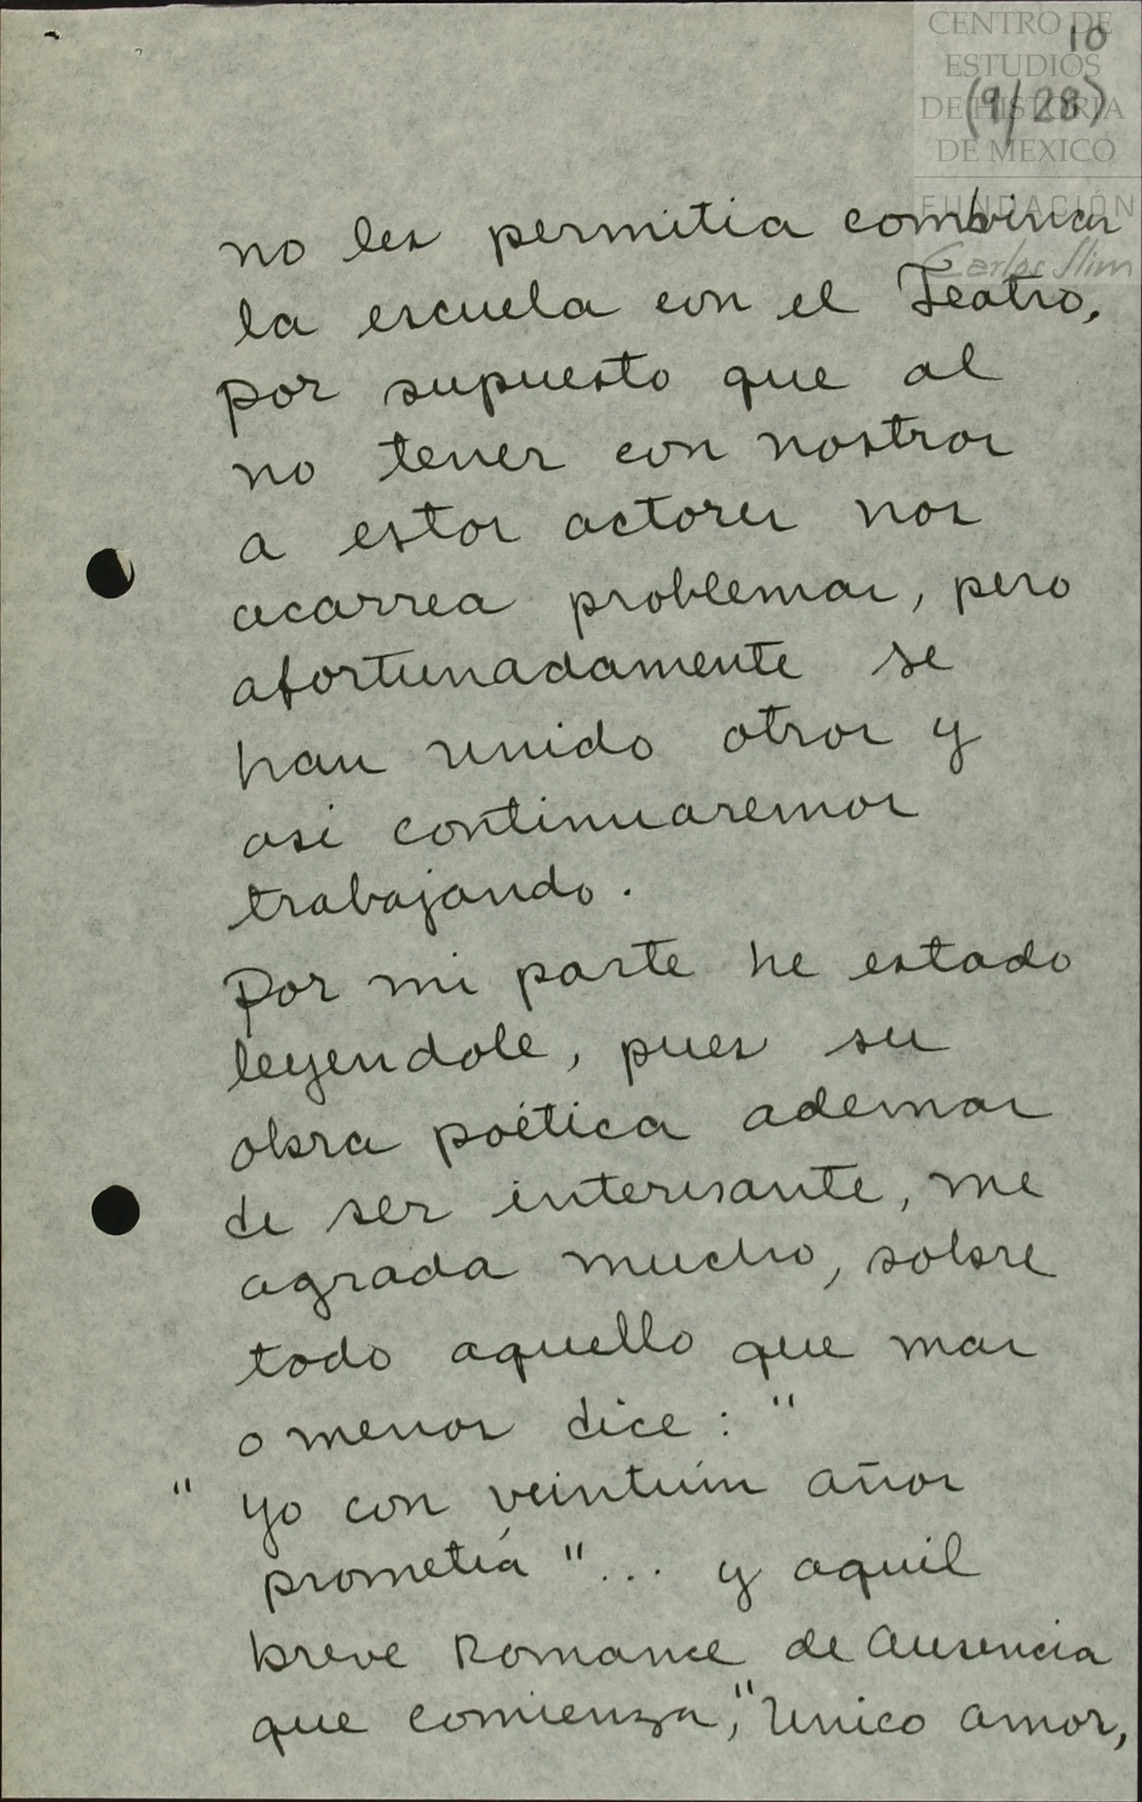 CENTRO DE
ESTUDIOS
DE HISTORIA
DE MEXICO
FUNDACIÓN
Carlos Slim
10
(9/28)
no les permitia combinar
la escuela con el Teatro,
por supuesto que al
no tener con nostros
a estos actores nos
acarrea problemas, pero
afortunadamente se
han unido otros y
asi continuaremos
trabajando.
Por mi parte he estado
leyendole, pues su
obra poética ademas
de ser interesante, me
agrada mucho, sobre
todo aquello que mas
o menos dice: "
" yo con veintiún años
prometía "... y aquil
breve Romance de Ausencia
que comienza, "Unico amor,